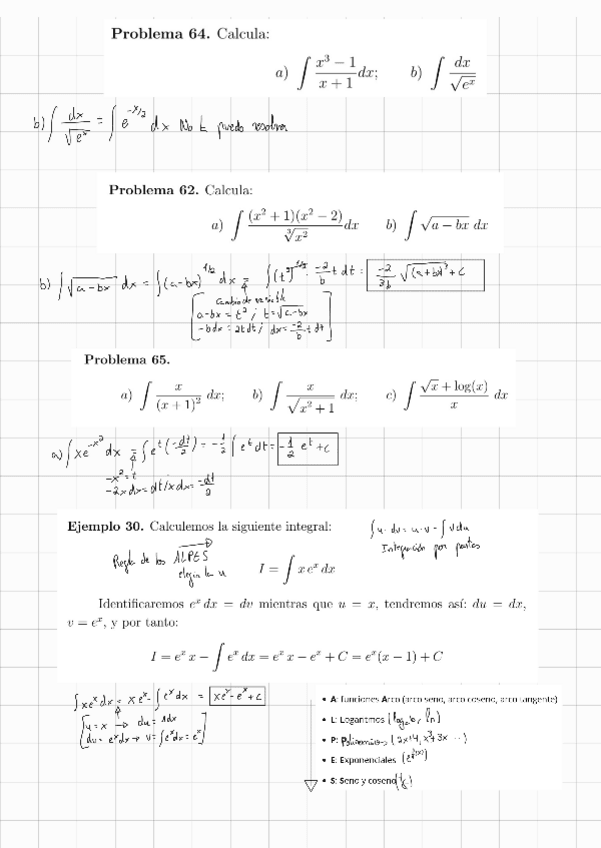 Problema 64. Calcula:
a) ∫ (x³ − 1)/(x + 1) dx; b) ∫ dx/√(eˣ)
b) ∫ dx/√(eˣ) = ∫ e^(-x/2) dx No L puedo resolver
Problema 62. Calcula:
a) ∫ (x² + 1)(x² − 2)/∛(x²) dx b) ∫ √(a − bx) dx
b) ∫ √(a-bx) dx = ∫ (a-bx)^(1/2) dx = ∫ (t²)^(1/2) · -2/b t dt = -2/3b √(a+bx)³ + C
Cambio de variable
a-bx = t² ; t = √(a-bx)
-bdx = 2tdt ; dx = -2/b t dt
Problema 65.
a) ∫ x/(x + 1)² dx; b) ∫ x/√(x² + 1) dx; c) ∫ (√x + log(x))/x dx
a) ∫ xe^(-x²) dx = ∫ e^t (-dt/2) = -1/2 ∫ e^t dt = -1/2 e^t + C
-x² = t
-2xdx = dt / xdx = -dt/2
Ejemplo 30. Calculemos la siguiente integral:
∫ u · dv = u · v - ∫ vdu
Integración por partes
Regla de los ALPES
elegir la u
I = ∫ x eˣ dx
Identificaremos eˣ dx = dv mientras que u = x, tendremos así: du = dx,
v = eˣ, y por tanto:
I = eˣ x − ∫ eˣ dx = eˣ x − eˣ + C = eˣ(x − 1) + C
∫ xeˣdx = xeˣ - ∫ eˣdx = xeˣ - eˣ + C
u = x → du = 1dx
dv = eˣdx → v = ∫eˣdx = eˣ
• A: funciones Arco (arco seno, arco coseno, arco tangente)
• L: Logaritmos
• P: Polinomios (2x+4, x²+3x ...)
• E: Exponenciales
• S: Seno y coseno